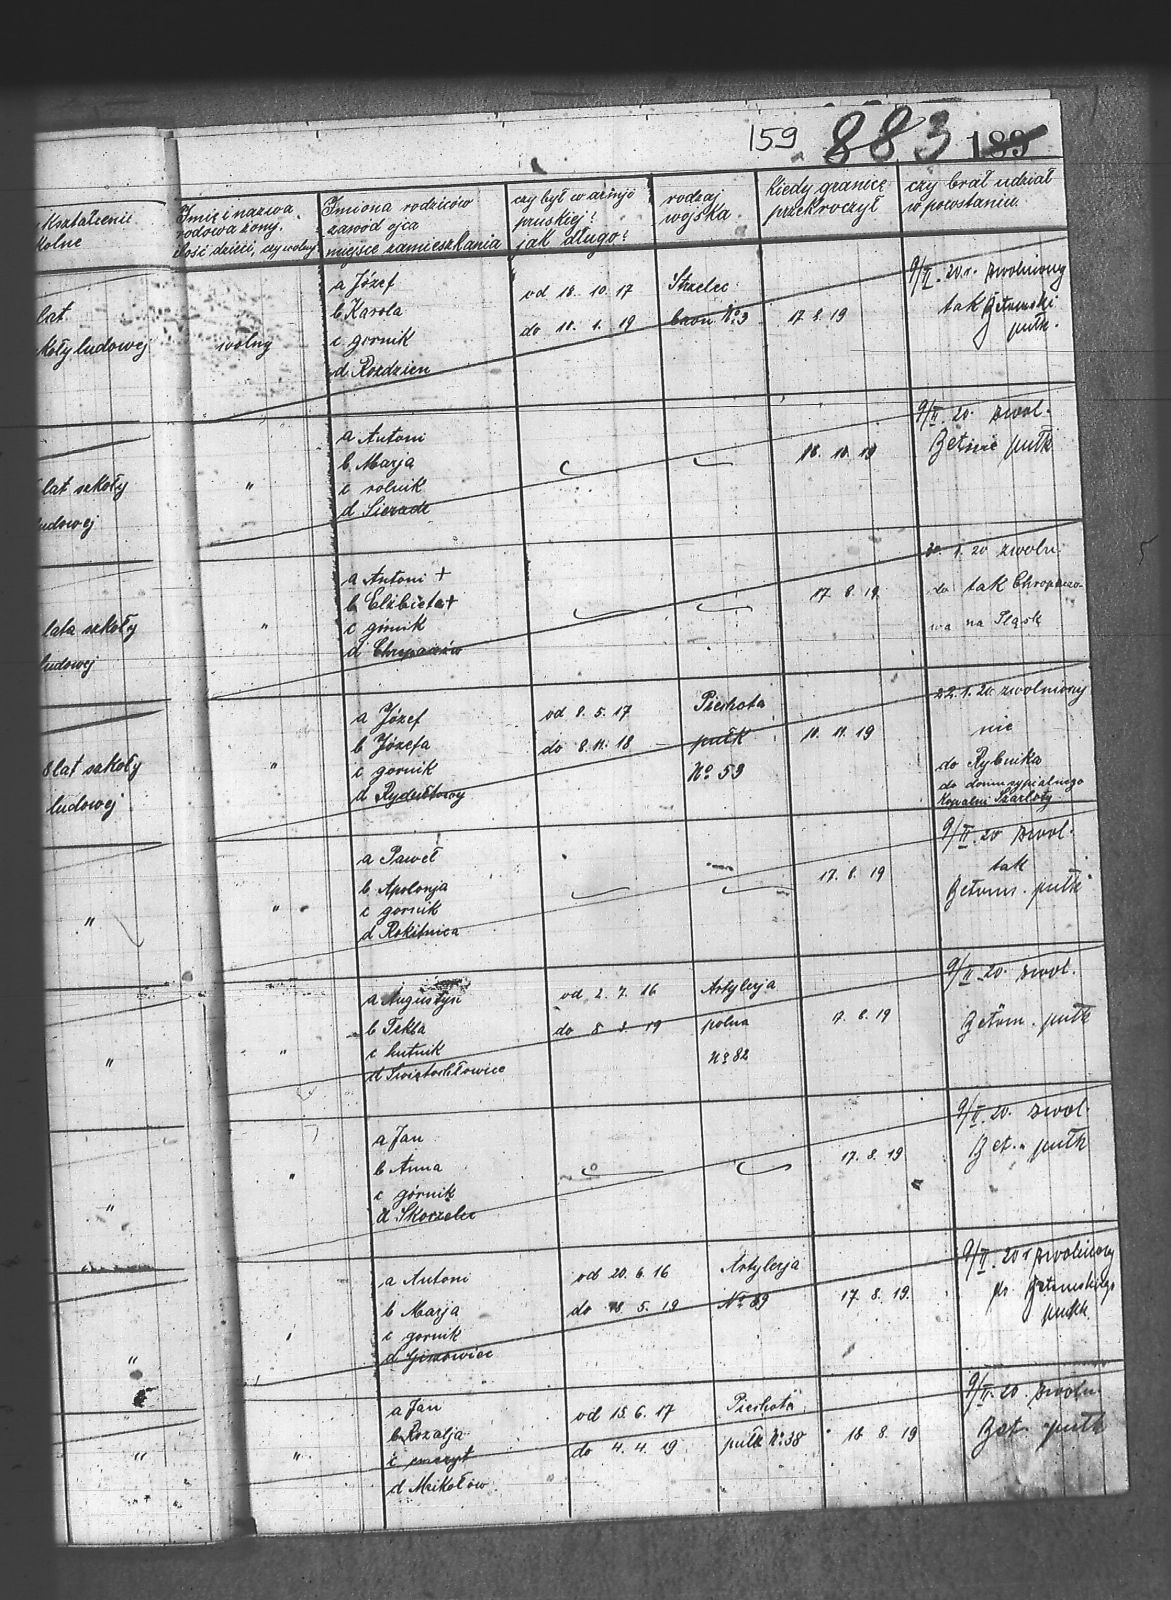 159 883 189
kształcenie
kolne
Imię i nazwa
rodowa żony.
ilość dzieci, czy wolny
Imiona rodziców
zawód ojca
miejsce zamieszkania
czy był w armji
pruskiej?
jak długo?
rodzaj
wojska
kiedy granicę
przekroczył
czy brał udział
w powstaniu
lat
koły ludowej
wolny
a Józef
b Karola
c gornik
d Rozdzien
od 18. 10. 17
do 18. 1. 19
Strzelec
baon No 3
17. 8. 19
9/II. 20 r. zwolniony
tak Bytomski
pułk.
lat szkoły
ludowej
"
a Antoni
b Marja
c rolnik
d Sieradz
18. 10. 19
9/II. 20. zwol.
pułk
lata szkoły
ludowej
"
a Antoni +
b Elżbieta +
c górnik
d Chropaczów
17. 8. 19
20. 1. 20 zwoln.
do tak Chropaczo-
wa na Śląsk
8 lat szkoły
ludowej
"
a Józef
b Józefa
c gornik
d Rydułtowy
od 8. 5. 17
do 8. 11. 18
Piechota
pułk
No 59
10. 11. 19
22. 1. 20 zwolniony
nie
do Rybnika
do domu sypialnego
Kopalni Szarloty
"
"
a Paweł
b Apolonja
c gornik
d Rokitnica
17. 8. 19
9/II. 20 zwol.
tak
Bytom. pułk
"
"
a Augustyn
b Tekla
c hutnik
d Świętochłowice
od 2. 7. 16
do 8. 3. 19
Artylerja
polna
No 82
17. 8. 19
9/II. 20. zwol.
Bytom. pułk
"
"
a Jan
b Anna
c górnik
d Skorzelec
17. 8. 19
9/II. 20. zwol.
Byt. pułk
"
"
a Antoni
b Marja
c gornik
d
od 20. 6. 16
do 18. 5. 19
Artylerja
No 89
17. 8. 19.
9/II. 20 r zwolniony
Bytomskiego
pułk
"
"
a Jan
b Rozalja
c emeryt
d Mikołów
od 15. 6. 17
do 4. 4. 19
Piechota
pułk No 38
18. 8. 19
9/II. 20. zwoln.
Byt. pułk